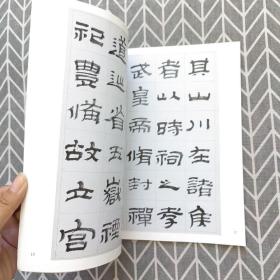 其山川在諸侯
者以時祠之孝
武皇帝脩封禪
道巡省五嶽禋
祀豐備故立宮